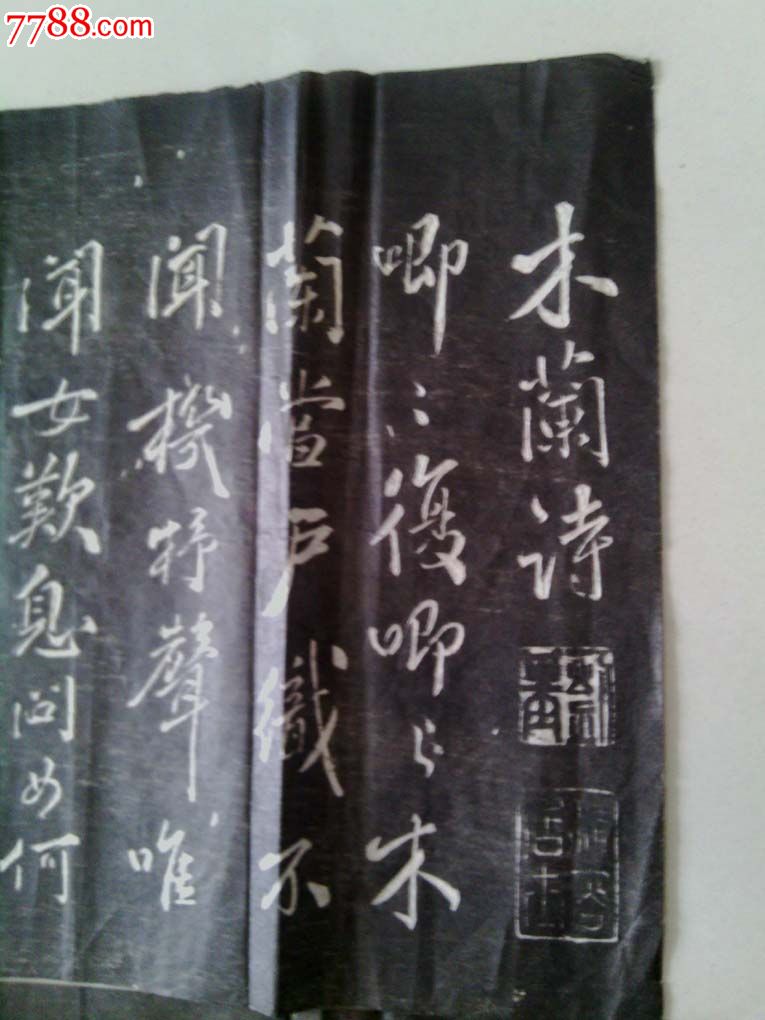 7788.com
木蘭詩
唧〻復唧〻木
蘭當户織不
聞機杼聲唯
聞女歎息問女何